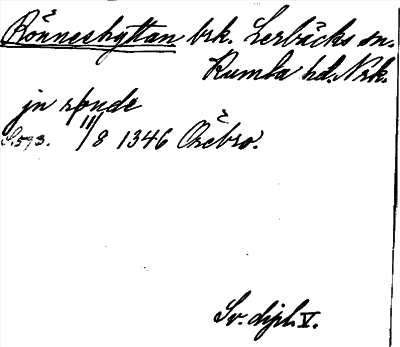 Rönneshyttan brk. Lerbäcks sn.
Kumla hd. Nrk.
jn rþnde
S. 593. 11/8 1346 Örebro.
Sv. dipl. V.